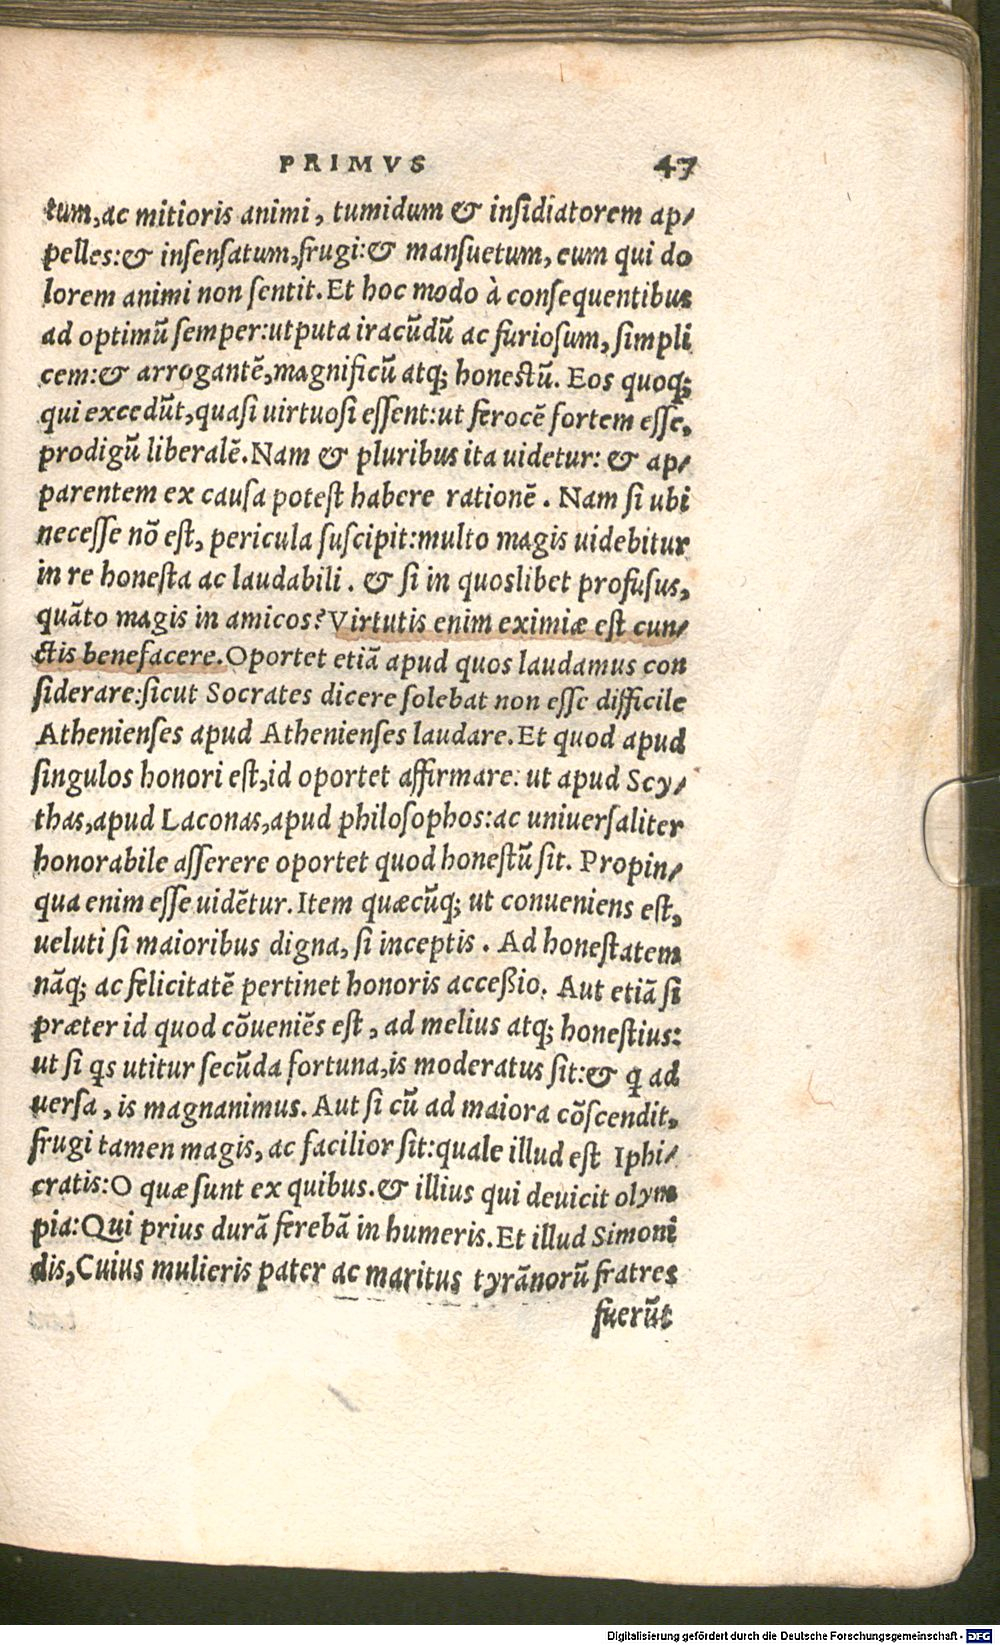 PRIMVS 47
tum, ac mitioris animi, tumidum & insidiatorem ap⸗
pelles: & insensatum, frugi: & mansuetum, eum qui do
lorem animi non sentit. Et hoc modo à consequentibus
ad optimū semper: utputa iracūdū ac furiosum, simpli
cem: & arrogantē, magnificū atq; honestū. Eos quoq;
qui excedūt, quasi uirtuosi essent: ut ferocē fortem esse,
prodigū liberalē. Nam & pluribus ita uidetur: & ap⸗
parentem ex causa potest habere rationē. Nam si ubi
necesse nō est, pericula suscipit: multo magis uidebitur
in re honesta ac laudabili. & si in quoslibet profusus,
quāto magis in amicos? Virtutis enim eximiæ est cun⸗
ctis benefacere. Oportet etiā apud quos laudamus con
siderare: sicut Socrates dicere solebat non esse difficile
Athenienses apud Athenienses laudare. Et quod apud
singulos honori est, id oportet affirmare: ut apud Scy⸗
thas, apud Laconas, apud philosophos: ac uniuersaliter
honorabile asserere oportet quod honestū sit. Propin⸗
qua enim esse uidētur. Item quæcūq; ut conueniens est,
ueluti si maioribus digna, si inceptis. Ad honestatem
nāq; ac felicitatē pertinet honoris acceßio. Aut etiā si
præter id quod cōueniēs est, ad melius atq; honestius:
ut si qs utitur secūda fortuna, is moderatus sit: & q ad
uersa, is magnanimus. Aut si cū ad maiora cōscendit,
frugi tamen magis, ac facilior sit: quale illud est Iphi⸗
cratis: O quæ sunt ex quibus. & illius qui deuicit olym
pia: Qui prius durā ferebā in humeris. Et illud Simoni
dis, Cuius mulieris pater ac maritus tyrānorū fratres
fuerūt
Digitalisierung gefördert durch die Deutsche Forschungsgemeinschaft - DFG